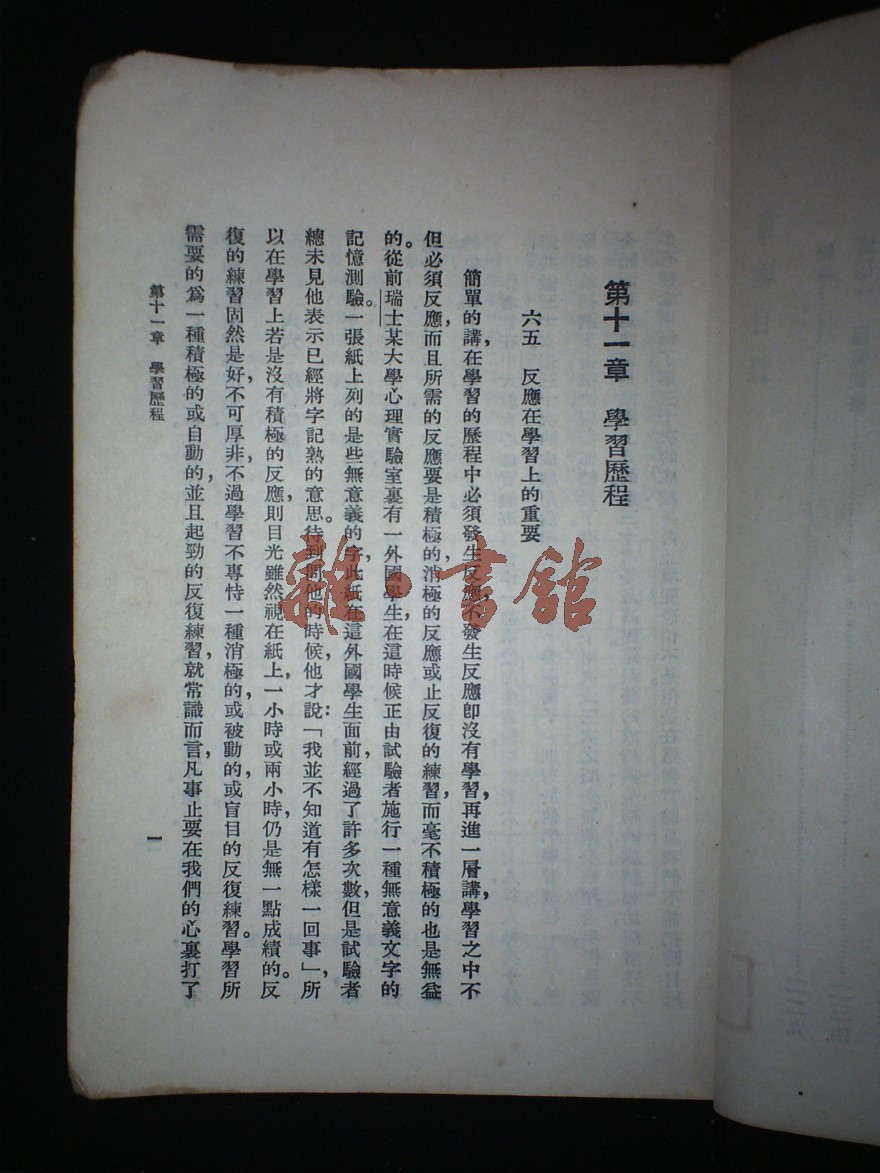 第十一章　學習歷程
六五　反應在學習上的重要
簡單的講，在學習的歷程中必須發生反應，不發生反應卽沒有學習，再進一層講，學習之中不
但必須反應，而且所需的反應要是積極的，消極的反應或止反復的練習，而毫不積極的也是無益
的。從前瑞士某大學心理實驗室裏有一外國學生，在這時候正由試驗者施行一種無意義文字的
記憶測驗。一張紙上列的是些無意義的字，此紙在這外國學生面前經過了許多次數，但是試驗者
總未見他表示已經將字記熟的意思。待到問他的時候，他才說：「我並不知道有怎樣一回事」，所
以在學習上若是沒有積極的反應，則目光雖然視在紙上，一小時或兩小時，仍是無一點成績的。反
復的練習固然是好，不可厚非，不過學習不專恃一種消極的，或被動的，或盲目的反復練習。學習所
需要的爲一種積極的或自動的，並且起勁的反復練習，就常識而言，凡事止要在我們的心裏打了
第十一章　學習歷程
一
雜·書館
二二九